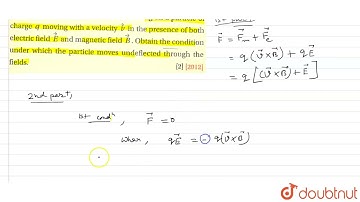 charge q moving with a velocity v⃗ in the presence of both
electric field E⃗ and magnetic field B⃗. Obtain the condition
under which the particle moves undeflected through the
fields. [2] [2012]
F⃗ = F⃗m + F⃗e
= q(v⃗×B⃗) + qE⃗
= q[(v⃗×B⃗)+E⃗]
2nd part,
1st condn, F⃗ = 0
when, qE⃗ = - q(v⃗×B⃗)
doubtnut